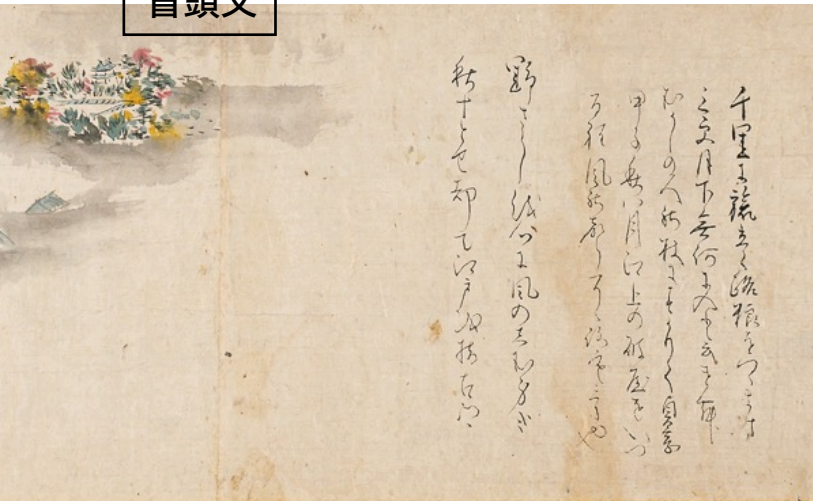 冒頭文
千里に旅立て路粮をつゝます
三更月下無何に入と云けむ
むかしの人の杖にすかりて貞享
甲子秋八月江上の破屋をいつ
る程風の聲そゝろ寒け也
野さらしを心に風のしむ身哉
秋十とせ却て江戸を指古郷